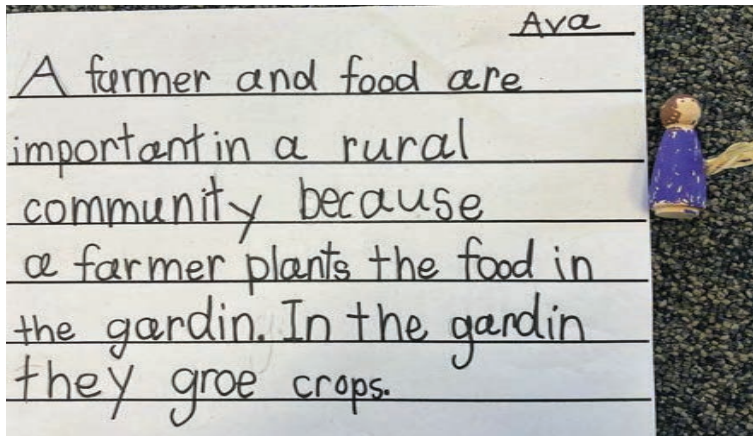 Ava
A farmer and food are
important in a rural
community because
a farmer plants the food in
the gardin. In the gardin
they groe crops.